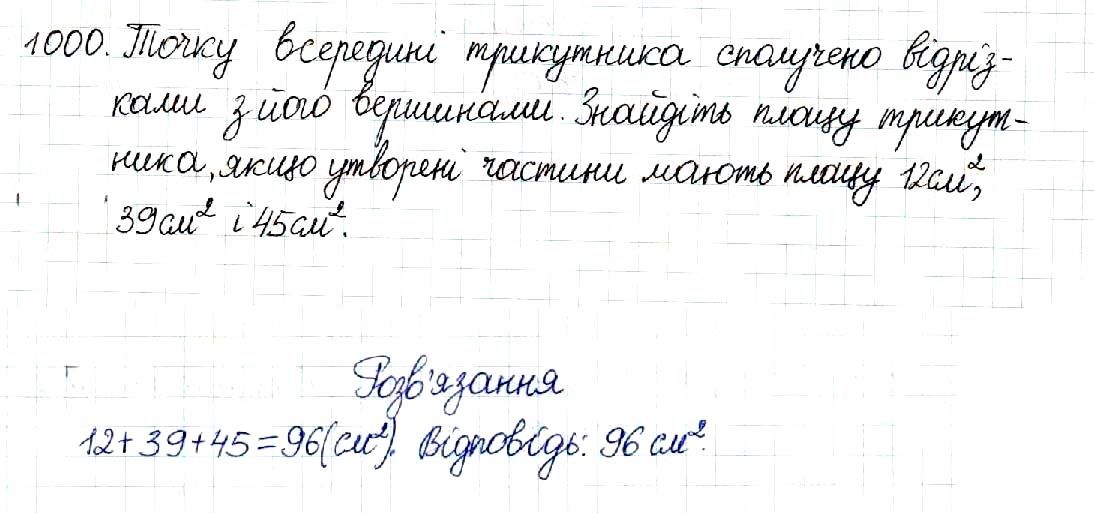 1000. Точку всередині трикутника сполучено відріз-
ками з його вершинами. Знайдіть площу трикут-
ника, якщо утворені частини мають площу 12см²,
39см² і 45см².
Розв'язання
12+39+45=96(см²). Відповідь: 96 см².